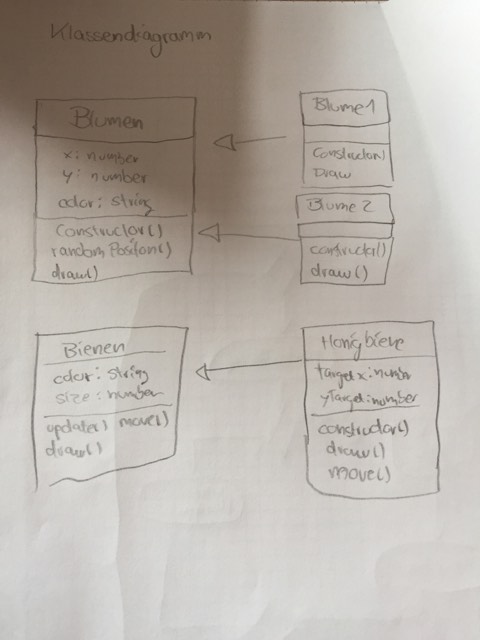 Klassendiagramm
Blumen
x: number
y: number
color: string
Constructor()
randomPosition()
draw()
Blume 1
Constructor()
Draw
Blume 2
constructor()
draw()
Bienen
color: string
size: number
update() move()
draw()
Honigbiene
targetx: number
yTarget: number
constructor()
draw()
move()